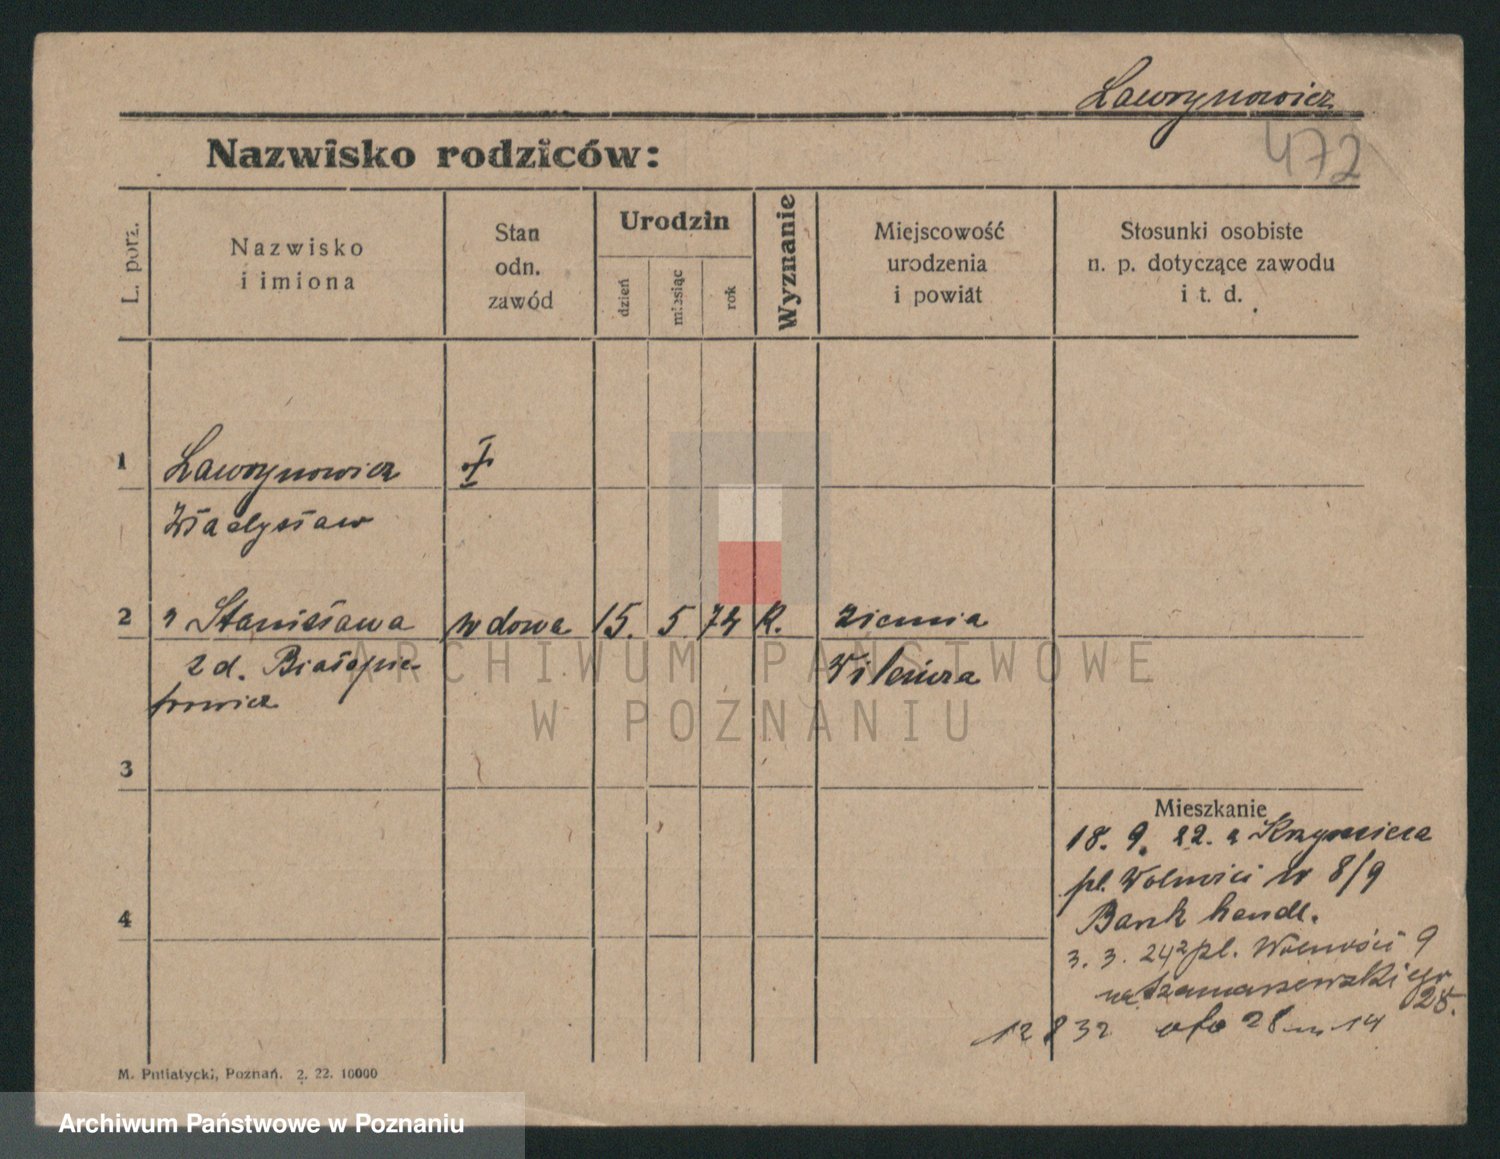 Ławrynowicz
472
Nazwisko rodziców:
L. porz.
Nazwisko
i imiona
Stan
odn.
zawód
Urodzin
dzień
miesiąc
rok
Wyznanie
Miejscowość
urodzenia
i powiat
Stosunki osobiste
n. p. dotyczące zawodu
i t. d.
1
Ławrynowicz
Władysław
2
" Stanisława
wdowa
15.
5.
74
K.
ziemia
z d. Białopio-
trowicz
Wileńska
ARCHIWUM PAŃSTWOWE
W POZNANIU
3
Mieszkanie
18. 9. 22. z Krzymienca
pl. Wolności W 8/9
Bank handl.
4
3. 3. 24 pl. Wolności 9
na Szamarzewskiego
28.
12 8 32 28 m 14
M. Putiatycki, Poznań. 2. 22. 10000
Archiwum Państwowe w Poznaniu